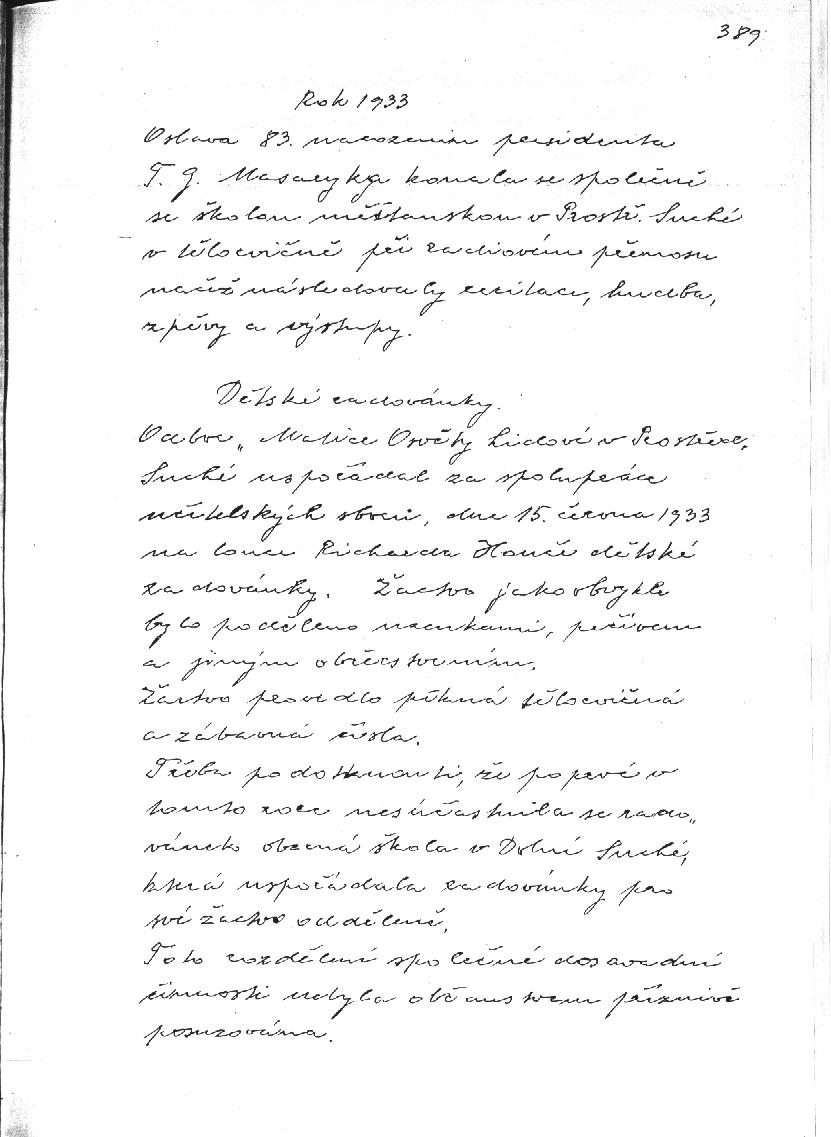 389
Rok 1933
Oslava 83. narozenin presidenta
T. G. Masaryka konala se společně
se školou měšťanskou v Prostř. Suché
v tělocvičně při radiovém přenosu
načež následovaly recitace, hudba,
zpěvy a výstupy.
Dětské radovánky.
Odbor „Matice Osvěty Lidové v Prostřed.
Suché uspořádal za spolupráce
učitelských sborů, dne 15. června 1933
na louce Richarda House dětské
radovánky. Žactvo jako obvykle
bylo poděleno uzenkami, pečivem
a jiným občerstvením.
Žactvo provedlo pěkná tělocvičná
a zábavná čísla.
Třeba podotknouti, že poprvé v
tomto roce nesúčastnila se rado„
vánek obecná škola v Dolní Suché,
která uspořádala radovánky pro
své žactvo odděleně.
Toto rozdělení společné dosavadní
činnosti nebyla občanstvem příznivě
posuzována.